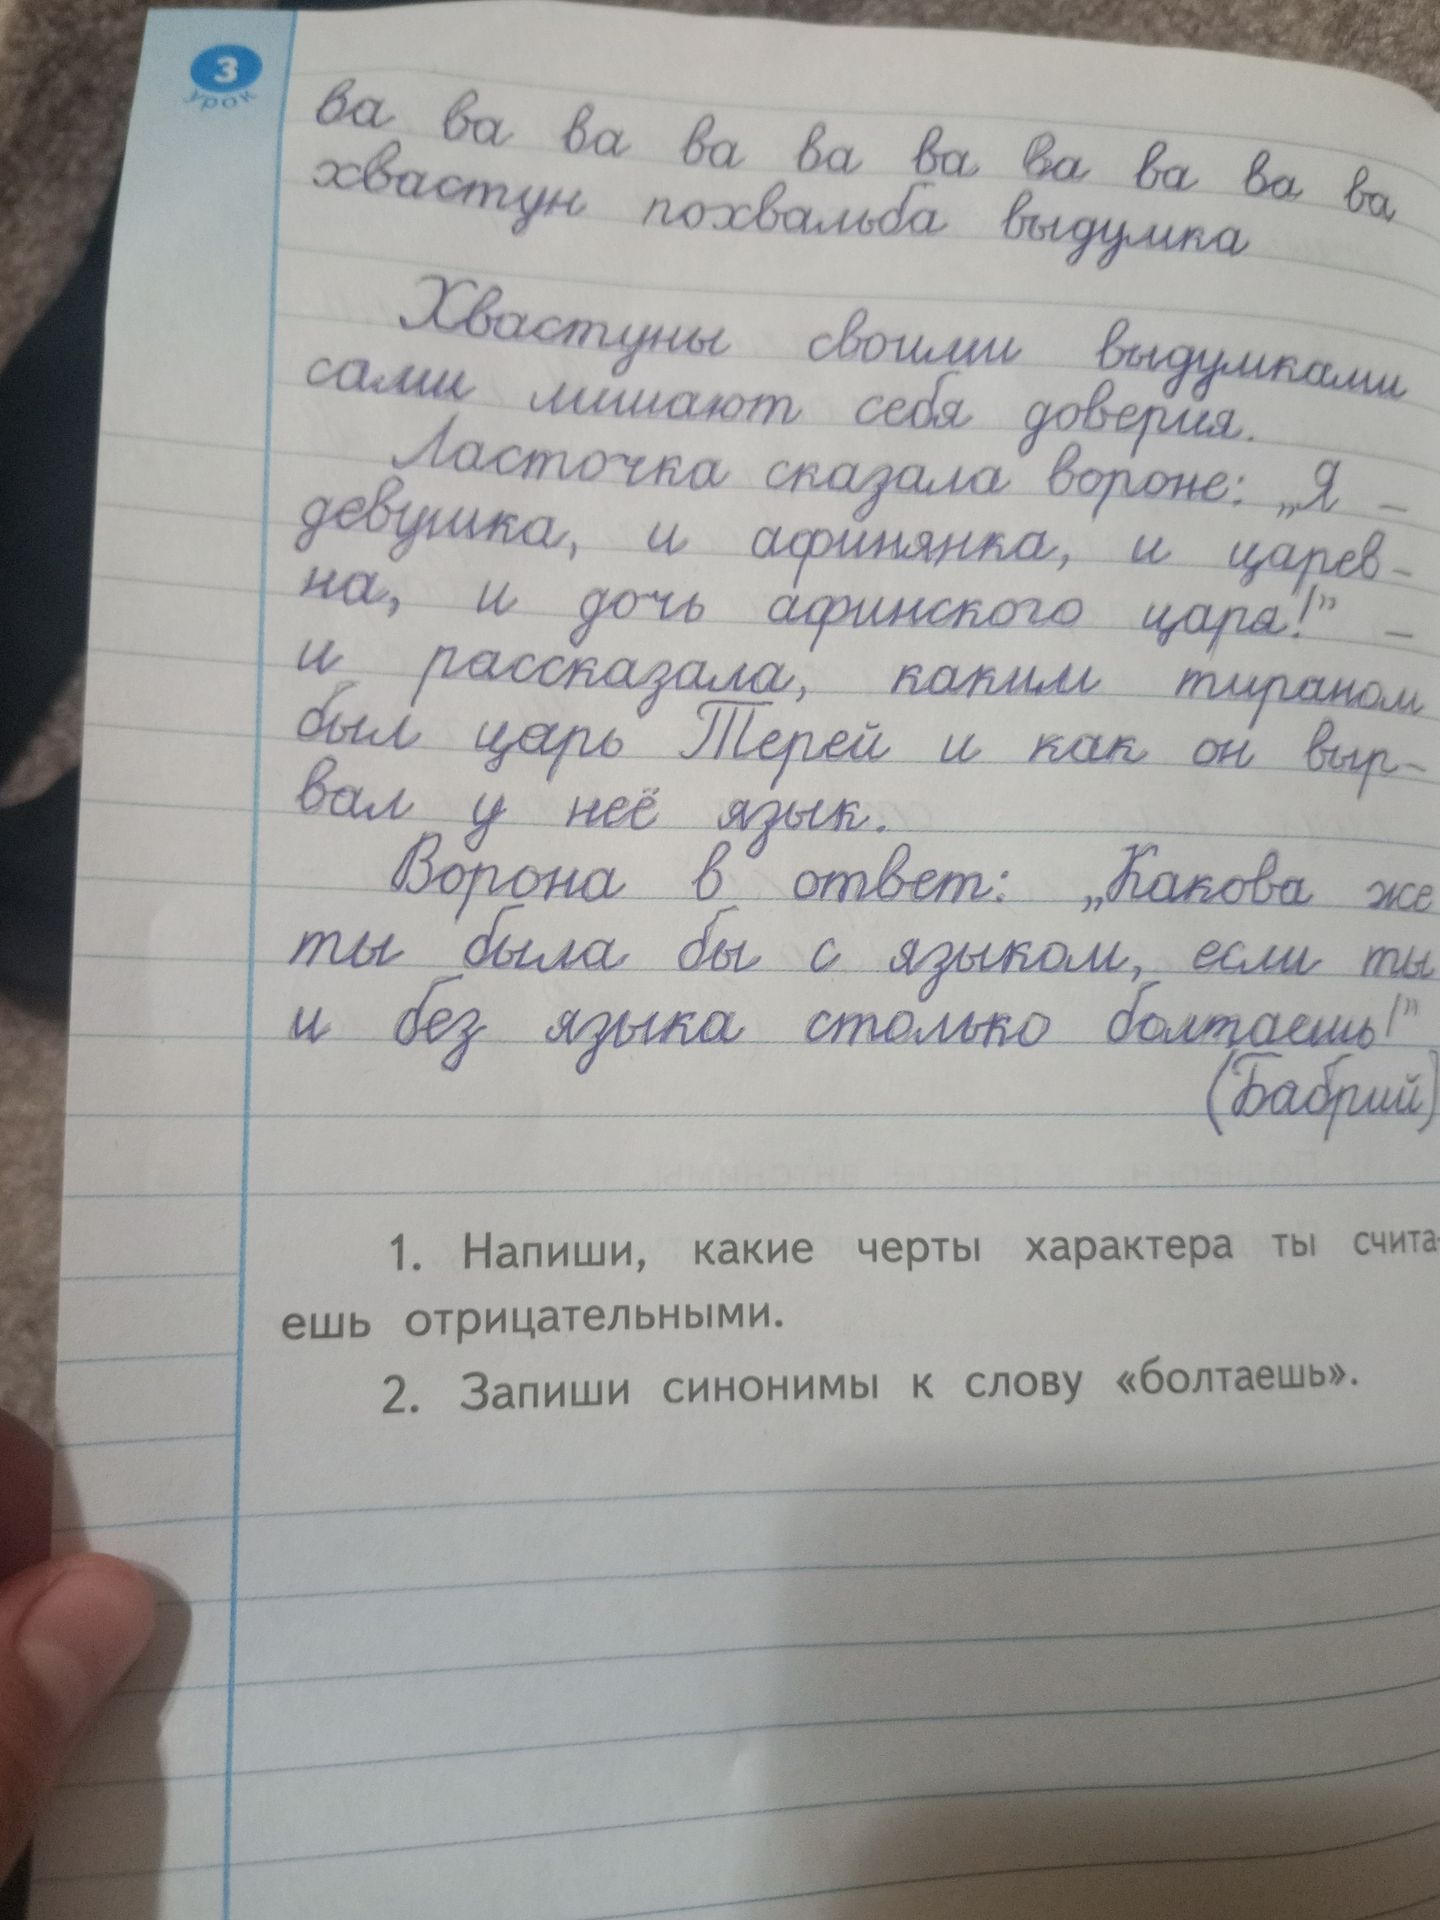 3
урок
ва ва ва ва ва ва ва ва ва ва
хвастун похвальба выдумка
Хвастуны своими выдумками
сами лишают себя доверия.
Ласточка сказала вороне: „Я –
девушка, и афинянка, и царев-
на, и дочь афинского царя!” –
и рассказала, каким тираном
был царь Терей и как он выр-
вал у неё язык.
Ворона в ответ: „Какова же
ты была бы с языком, если ты
и без языка столько болтаешь!”
(Бабрий)
1. Напиши, какие черты характера ты счита-
ешь отрицательными.
2. Запиши синонимы к слову «болтаешь».